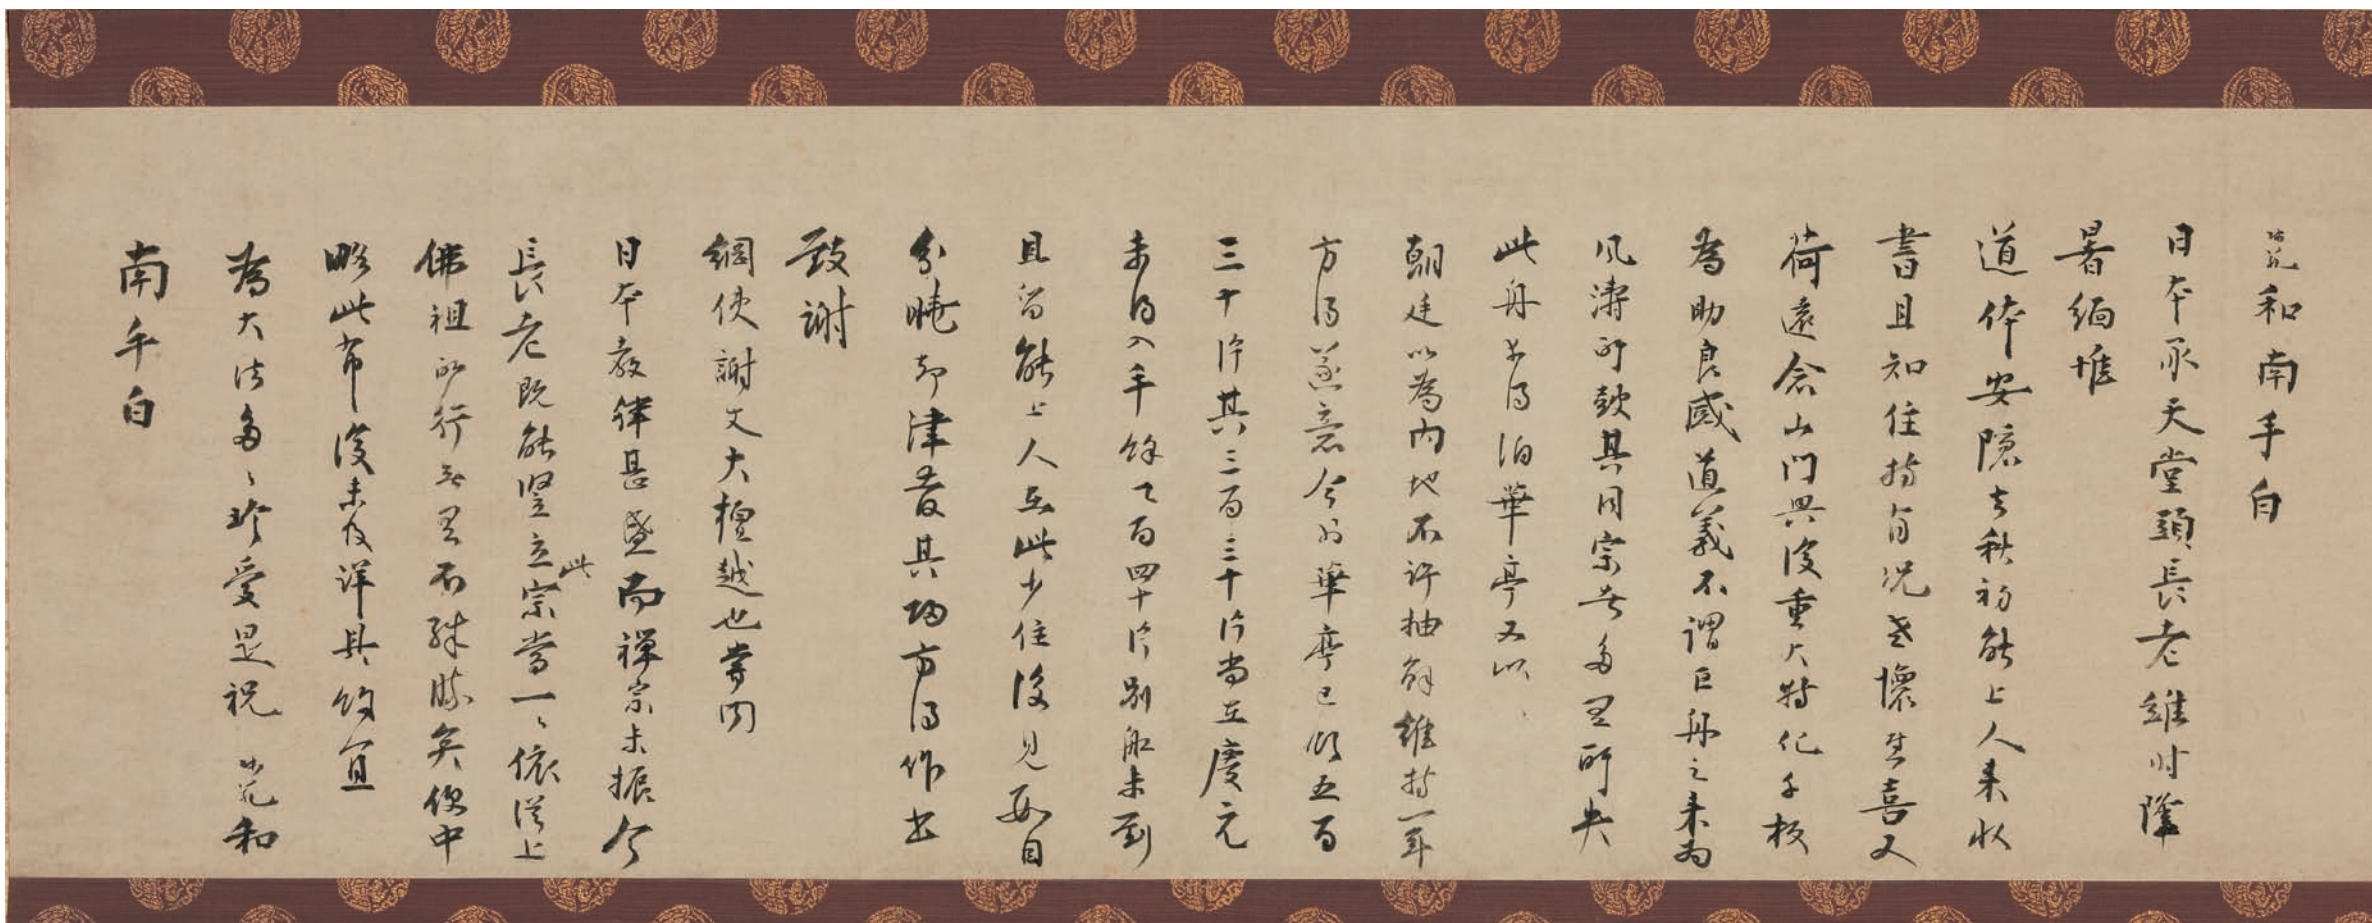 師範和南手白
日本承天堂頭長老維時隆
暑緬惟
道体安隱去秋初能上人来收
書且知住持有况老懷甚喜又
荷遠念山門興復重大特化千板
為助良感道義不謂巨舟之来為
風濤所皷其同宗者多有所失
此舟幸得泊華亭又以
朝廷以為内地不許抽解維持一年
方得遂意今到華亭已領五百
三十片其三百三十片尚在慶元
未得入手餘乃百四十片別船未到
且留能上人在此少住後見數目
分曉却津發其歸方得作書
致謝
綱使謝丈大檀越也嘗聞
日本教律甚盛而禪宗未振今
長老既能竪立此宗當一一依從上
佛祖所行無有不殊勝矣便中
略此布復未及詳具餘宜
為大法多多珍愛是祝 師範和
南手白